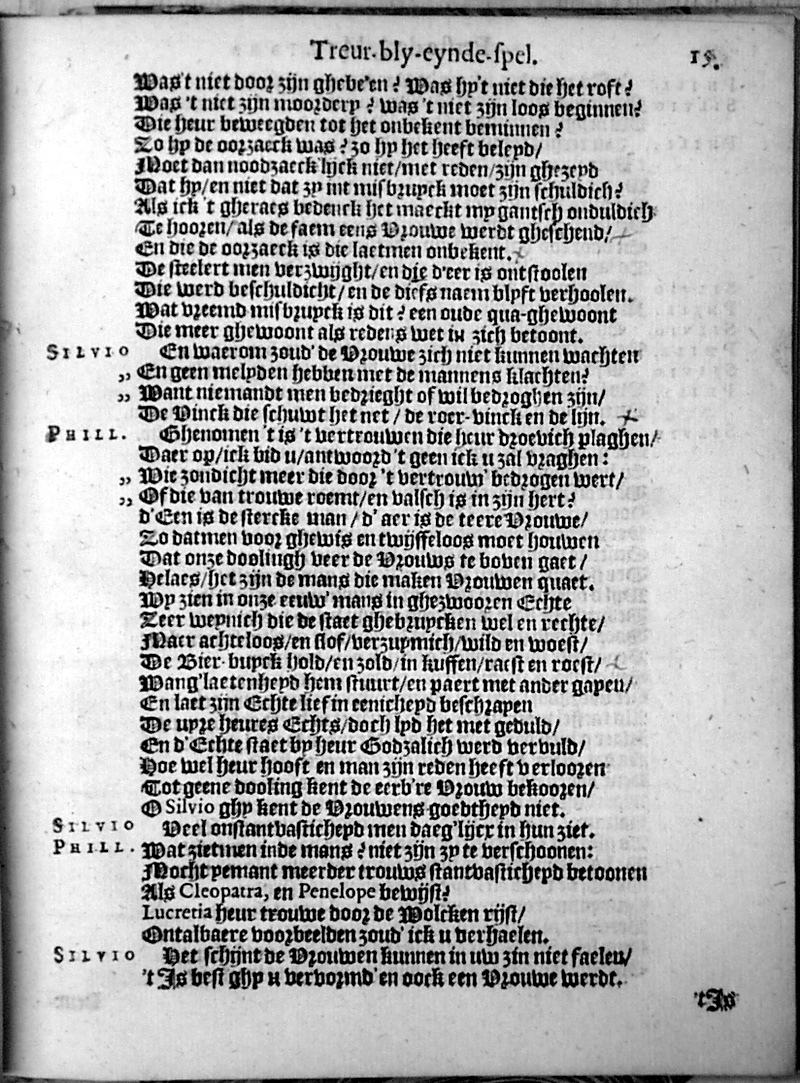 Treur-bly-eynde-spel. 15.
Was't niet door zijn ghebe'en? Was hy't niet die het rost?
Was 't niet zijn moordery? was 't niet zijn loos beginnen?
Die heur beweegden tot het onbekent beminnen?
Zo hy de oorzaeck was? zo hy het heeft beleyd/
Moet dan noodzaeck'lijck niet/met reden/zijn ghezeyd
Dat hy/en niet dat zy int misbruyck moet zijn schuldich?
Als ick 't gheraes bedenck het maeckt my gantsch onduldich
Te hooren/als de faem eens Vrouwe werdt gheschend/
En die de oorzaeck is die laetmen onbekent.
De steelert men verzwijght/en die d'eer is ontstoolen
Die werd beschuldicht/en de diefs naem blyft verhoolen.
Wat vreemd misbruyck is dit? een oude qua-ghewoont
Die meer ghewoont als redens wet in zich betoont.
SILVIO En waerom zoud' de Vrouwe zich niet kunnen wachten
„ En geen melyden hebben met de mannens klachten?
„ Want niemandt men bedrieght of wil bedroghen zijn/
De Vinck die schuwt het net/de roer-vinck en de lijn.
PHILL. Ghenomen 't is 't vertrouwen die heur droevich plaghen/
Daer op/ick bid u/antwoord 't geen ick u zal vraghen:
„ Wie zondicht meer die door 't vertrouw' bedrogen wert/
„ Of die van trouwe roemt/en valsch is in zijn hert?
d'Een is de stercke man/d'aer is de teere Vrouwe/
Zo datmen voor ghewis en twijffeloos moet houwen
Dat onze doolingh veer de Vrouws te boven gaet/
Helaes/het zijn de mans die maken Vrouwen quaet.
Wy zien in onze eeuw' mans in ghezwooren Echte
Zeer weynich die de staet ghebruycken wel en rechte/
Maer achteloos/en slof/verzupmich/wild en woest/
De Bier-buyck hold/en zold/in kuffen/raest en roest/
Wang'laetenheyd hem stuurt/en paert met ander gapen/
En laet zijn Echte lief in eenicheyd beschrapen
De uyre heures Echts/doch lyd het met geduld/
En d'Echte staet by heur Godzalich werd vervuld/
Hoe wel heur hooft en man zijn reden heeft verlooren
Tot geene dooling kent de eerb're Vrouw bekooren/
O Silvio ghy kent de Vrouwens goedtheyd niet.
SILVIO Veel onstantvastichheyd men daeg'lijcx in hun ziet.
PHILL. Wat zietmen inde mans? niet zijn zy te verschoonen:
Mocht yemant meerder trouws stantvasticheyd betoonen
Als Cleopatra, en Penelope bewijst?
Lucretia heur trouwe door de Wolcken rijst/
Ontalbaere voorbeelden zoud' ick u verhaelen.
SILVIO Het schijnt de Vrouwen kunnen in uw zin niet faelen/
't Is best ghy u vervormd' en oock een Vrouwe werdt.
't Is